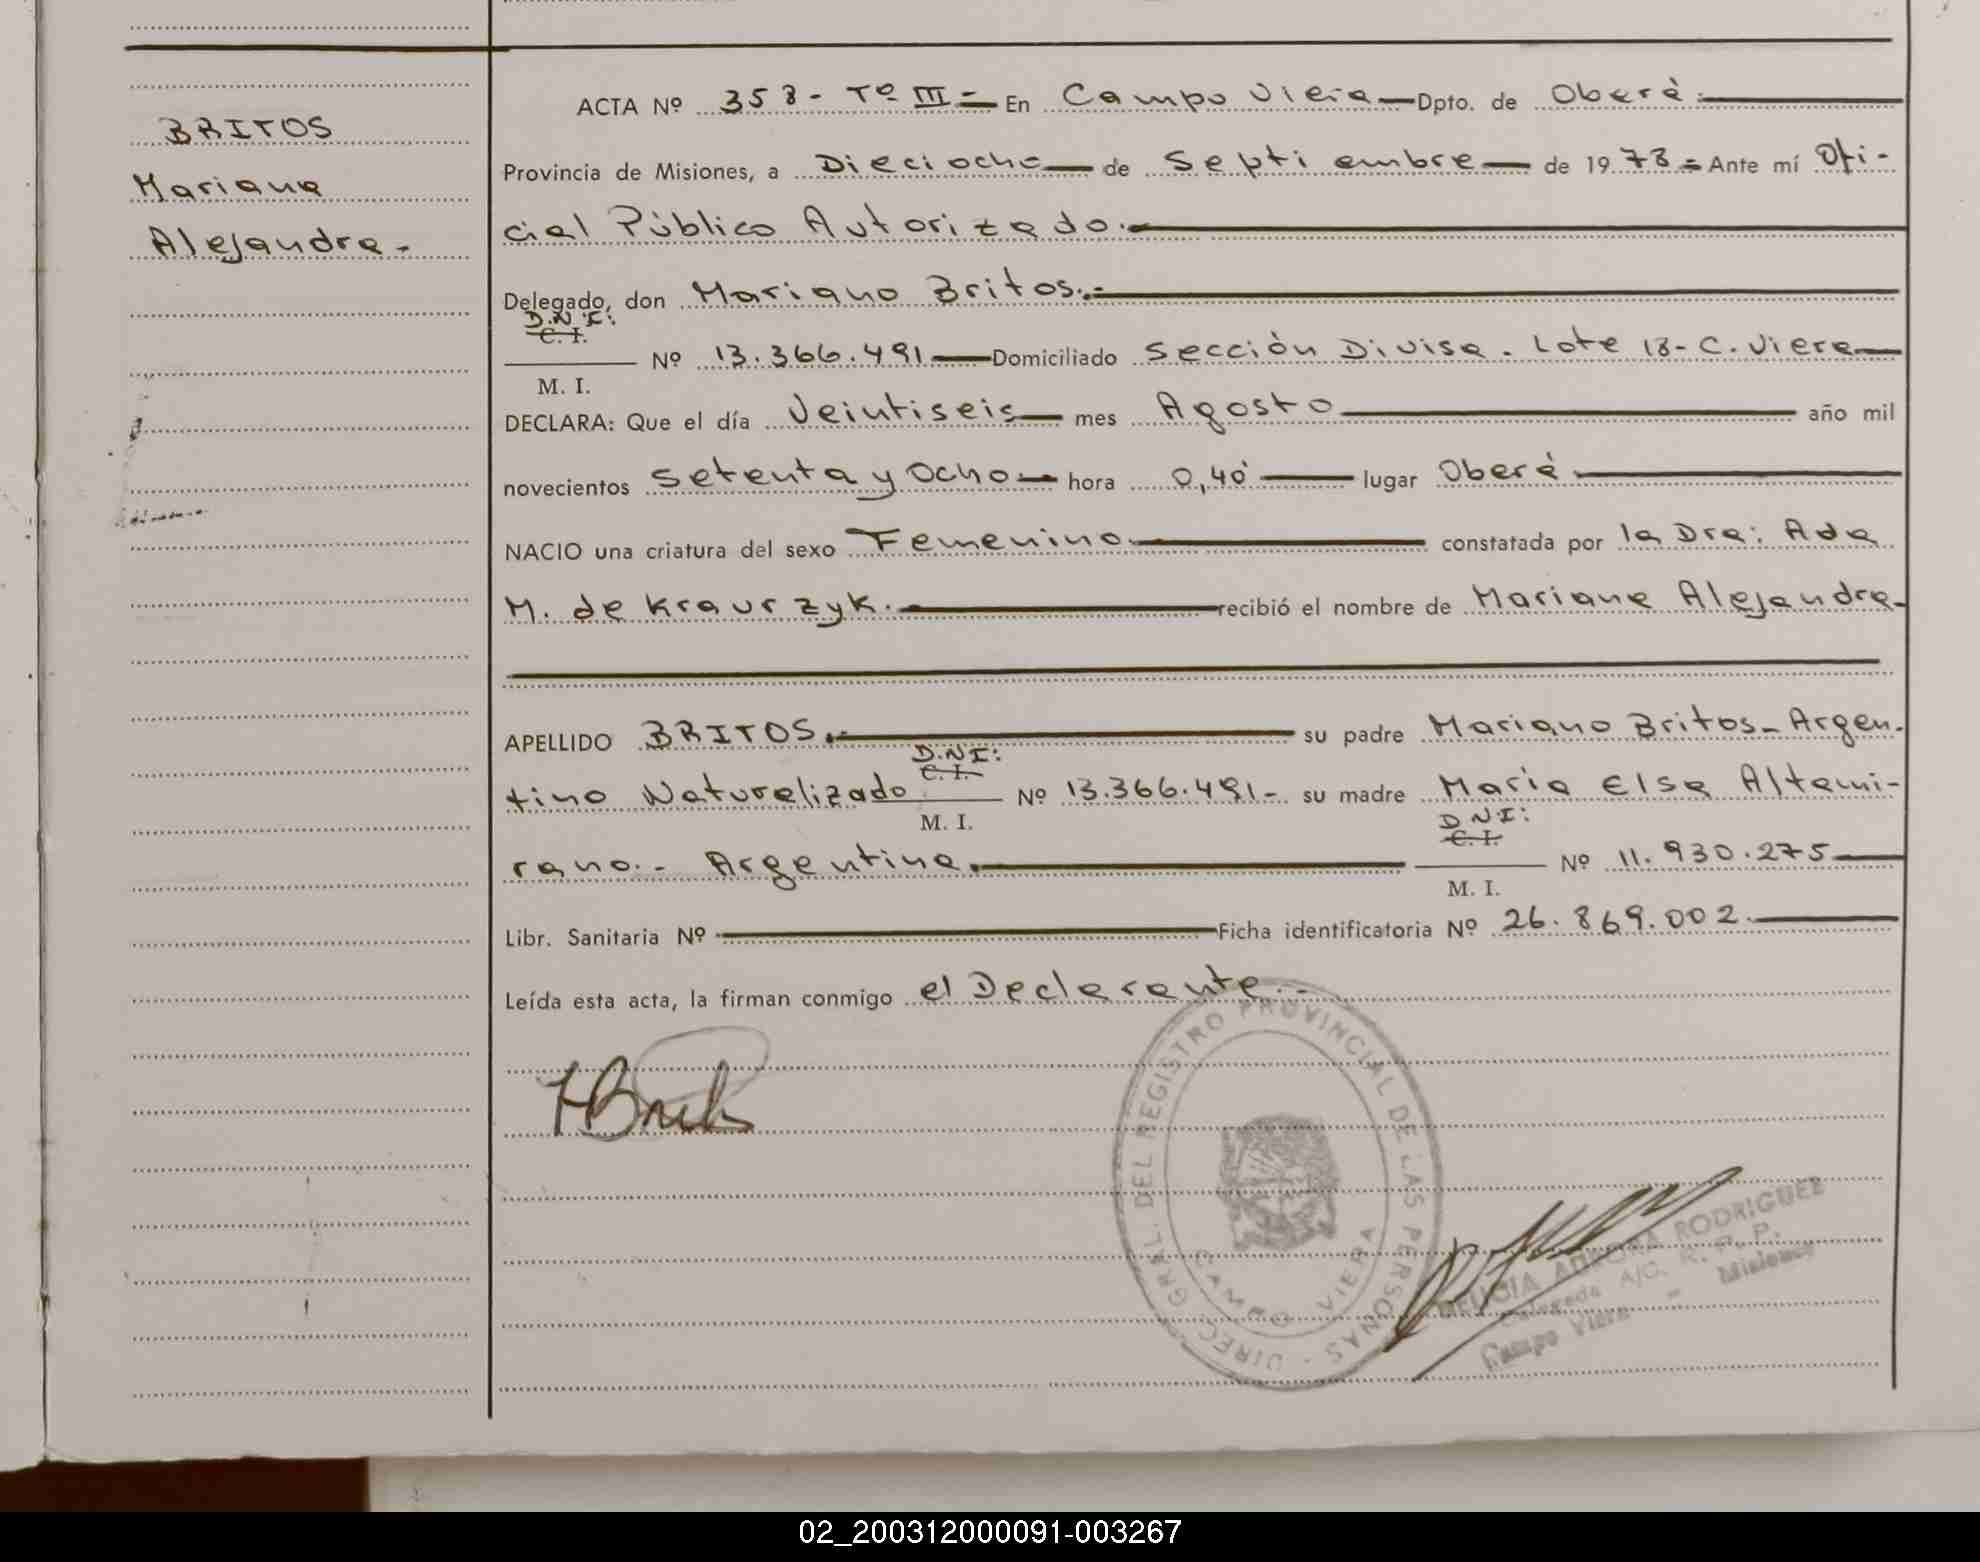 BRITOS
Mariana
Alejandra -
ACTA Nº 358 - Tº III - En Campo Viera Dpto. de Oberá.
Provincia de Misiones, a Dieciocho de Septiembre de 1978 - Ante mí Ofi-
cial Público Autorizado.
Delegado, don Mariano Britos.-
D.N.I:
C. I.
Nº 13.366.491 Domiciliado Sección Divisa. Lote 18 - C. Viera
M. I.
DECLARA: Que el día Veintiseis mes Agosto año mil
novecientos setenta y Ocho hora 0,40 lugar Oberá
NACIO una criatura del sexo Femenino constatada por la Dra: Ada
M. de Kraurzyk. recibió el nombre de Mariana Alejandra-
APELLIDO BRITOS.- su padre Mariano Britos - Argen-
tino Naturalizado D.N.I: C. I. M. I. Nº 13.366.491 - su madre María Elsa Altami-
rano.- Argentina. D.N.I: C. I. M. I. Nº 11.930.275
Libr. Sanitaria Nº Ficha identificatoria Nº 26.869.002.
Leída esta acta, la firman conmigo el Declarante.-
DIREC. GRAL. DEL REGISTRO PROVINCIAL DE LAS PERSONAS
CAMPO VIERA
AURORA RODRIGUEZ
Delegada A/C. R. P. P.
Campo Viera - Misiones
02_200312000091-003267